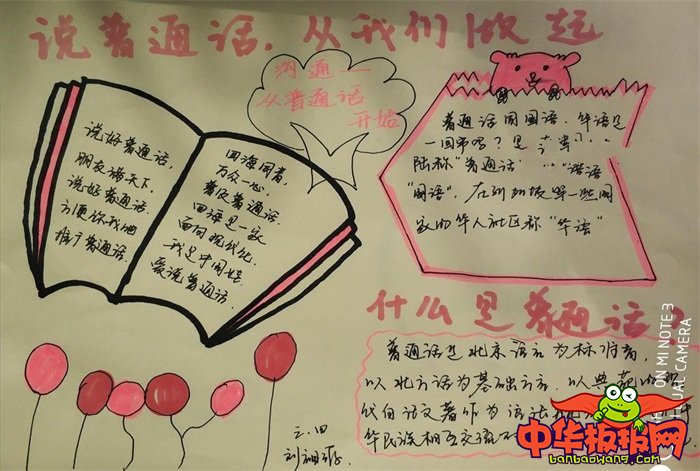 说普通话,从我们做起
沟通一
从普通话
开始
说好普通话,
朋友遍天下,
说好普通话,
方便你我他
推广普通话
四海同音,
万众一心,
普及普通话
四海是一家
面向现代化,
我是中国娃,
爱说普通话.
普通话同国语、华语是
一回事吗?是
陆称"普通话"
"国语",在新加坡等一些国
家的华人社区称"华语"
什么是普通话?
普通话是北京语音为标准音,
以北方话为基础方言,以典范的现
代白话文著作为语法
华民族相互交流
三.四
ON MI NOTE 3
UAL CAMERA
中华板报网
banbaowang.com